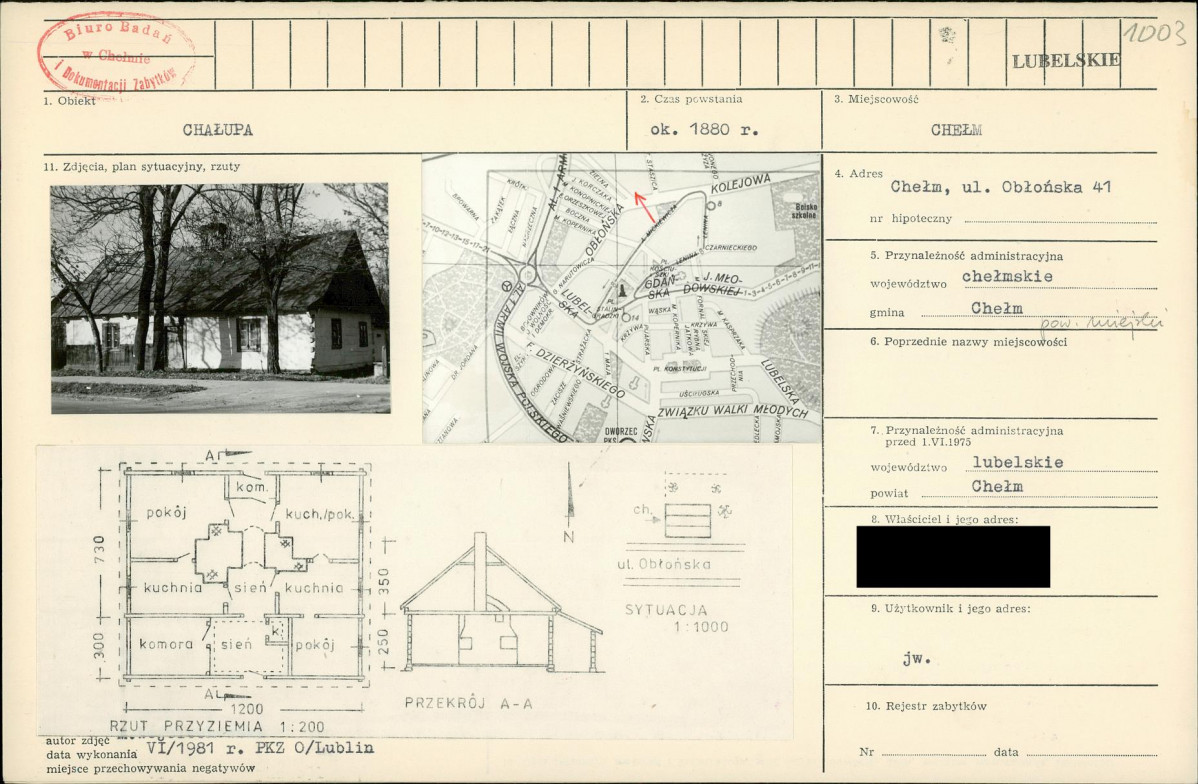 Biuro Badań
w Chełmie
i Dokumentacji Zabytków
1003
LUBELSKIE
1. Obiekt
CHAŁUPA
2. Czas powstania
ok. 1880 r.
3. Miejscowość
CHEŁM
11. Zdjęcia, plan sytuacyjny, rzuty
4. Adres
Chełm, ul. Obłońska 41
nr hipoteczny
5. Przynależność administracyjna
województwo chełmskie
gmina Chełm
pow. miejski
6. Poprzednie nazwy miejscowości
7. Przynależność administracyjna
przed 1.VI.1975
województwo lubelskie
powiat Chełm
8. Właściciel i jego adres:
9. Użytkownik i jego adres:
jw.
10. Rejestr zabytków
Nr data
KOLEJOWA
STASZICA
KRÓTKI
BROWARNA
ZAKĄTEK
ŁĄCZNA
ZIELNA
J. KORCZAKA
M. KONOPNICKIEJ
E. ORZESZKOWEJ
BOCZNA
M. KOPERNIKA
AL. I ARMII
OBŁOŃSKA
A. MICKIEWICZA
LENINA
8
Boisko
szkolne
CZARNIECKIEGO
G. NARUTOWICZA
LUBELSKA
GDAŃSKA
J. MŁODOWSKIEJ
WĄSKA
14
KRZYWA
PIJARSKA
M. KOPERNIKA
M. KASPRZAKA
PL. KONSTYTUCJI
F. DZIERŻYŃSKIEGO
AL. I ARMII WOJSKA POLSKIEGO
UŚCIŁUGSKA
LUBELSKA
ZWIĄZKU WALKI MŁODYCH
DWORZEC
PKS
A
kom.
pokój
kuch./pok.
kuchnia
sień
kuchnia
komora
sień
k.
pokój
730
300
A
1200
RZUT PRZYZIEMIA 1:200
350
250
PRZEKRÓJ A-A
N
ch.
ul. Obłońska
SYTUACJA
1:1000
autor zdjęć
data wykonania VI/1981 r. PKZ O/Lublin
miejsce przechowywania negatywów